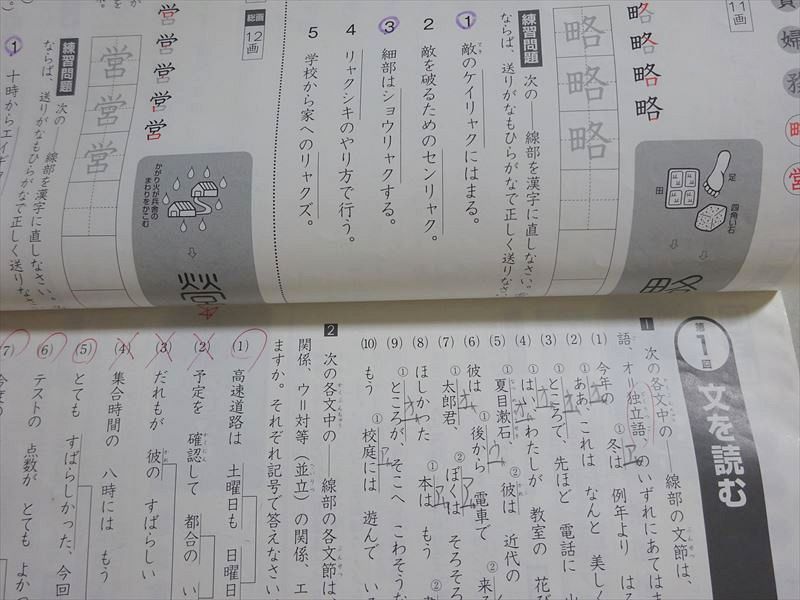 11画
略
略
略
略
足
四角い石
田
略
略
略
練習問題
次の――線部を漢字に直しなさい。
ならば、送りがなもひらがなで正しく送りなさ
1 敵のケイリャクにはまる。
2 敵を破るためのセンリャク。
3 細部はショウリャクする。
4 リャクシキのやり方で行う。
5 学校から家へのリャクズ。
総画
12画
営
営
営
営
営
かがり火が兵舎の
まわりをかこむ
営
営
営
練習問題
次の――線部を漢字に直しなさい。
ならば、送りがなもひらがなで正しく送りなさ
1 十時からエイギ
婦
略
営
第1回
文を読む
1 次の各文中の――線部の文節は、
語、オ=独立語、のいずれにあてはま
(1) 今年の ①冬は 例年より
(2) ①ああ、これは なんと 美し
(3) ①ところで、先ほど 電話に
(4) ①はい、わたしが 教室の 花び
(5) ①夏目漱石、②彼は 近代の
(6) 彼は ①後から 電車で ②来
(7) ①太郎君、②ぼくは そろそろ
(8) ほしかった ①本は もう
(9) ①ところが、そこへ こわそうな
(10) もう ①校庭には 遊んで い
2 次の各文中の――線部の各文節は、
関係、ウ=対等（並立）の関係、エ
ますか。それぞれ記号で答えなさい
(1) 高速道路は 土曜日も 日曜日
(2) 予定を 確認して 都合の い
(3) だれもが 彼の すばらしい
(4) 集合時間の 八時には もう
(5) とても すばらしかった、今回
(6) テストの 点数が とても よかっ
(7) 今年の